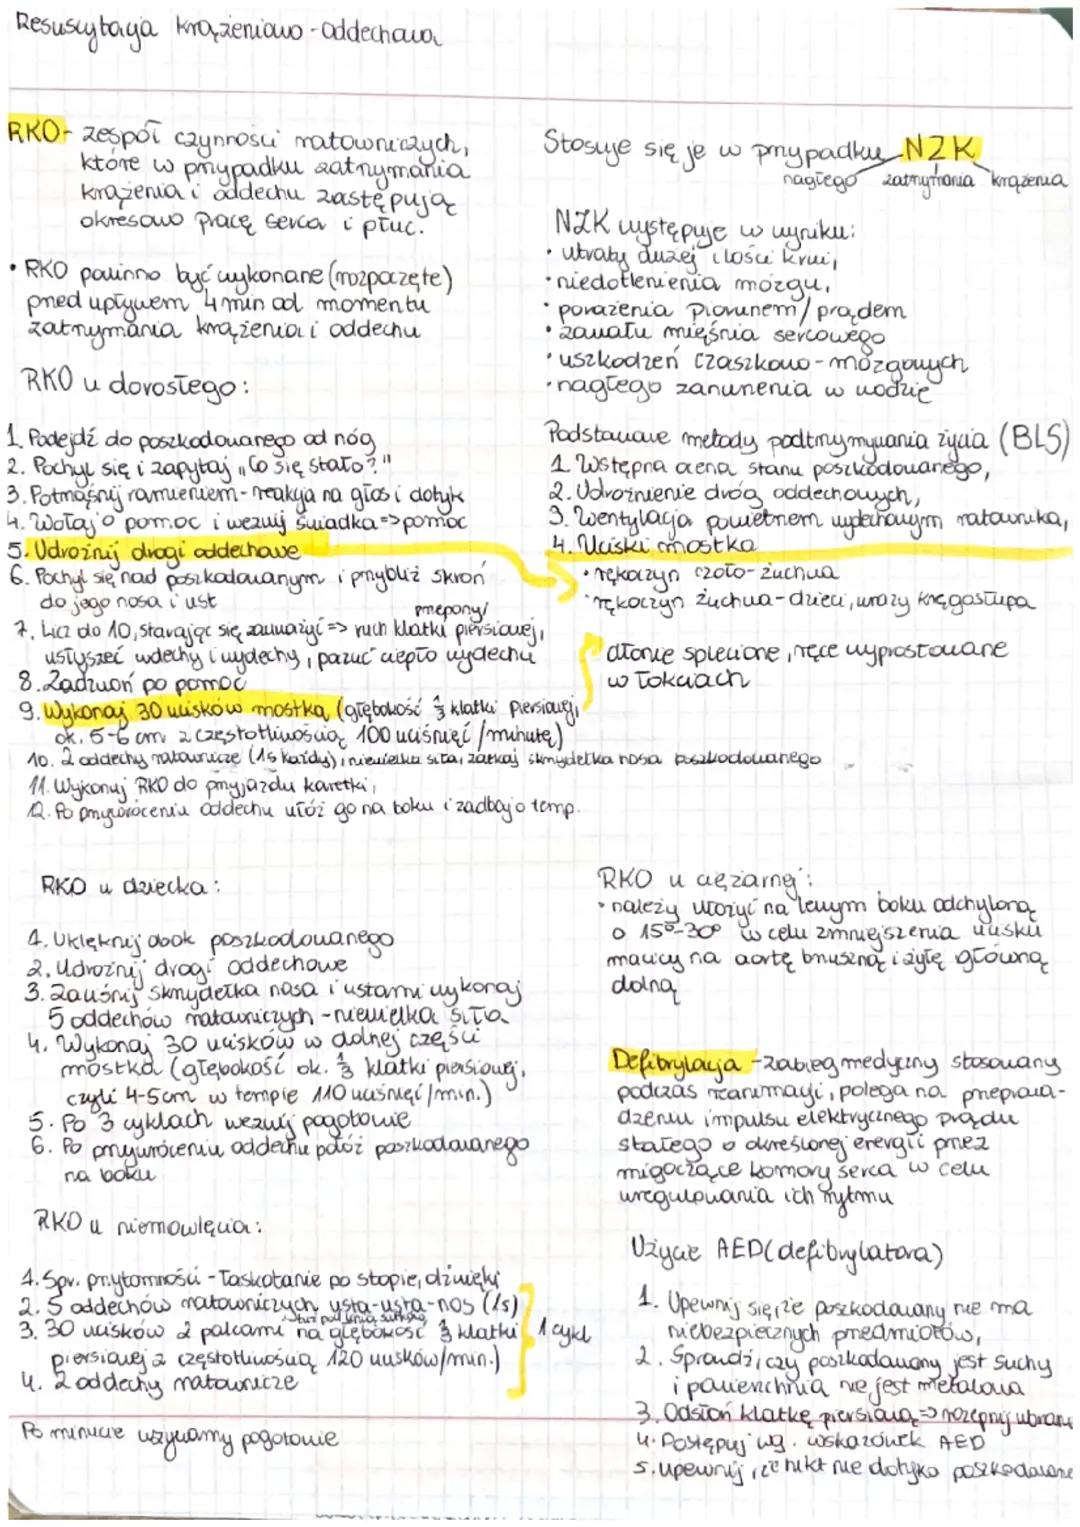 Resuscytacja krążeniowo-oddechowa
RKO- zespół czynności ratowniczych,
które w przypadku zatrzymania
krążenia i oddechu zastępują
okresowo pracę serca i płuc.
• RKO powinno być wykonane (rozpoczęte)
przed upływem 4 min od momentu
zatrzymania krążenia i oddechu
RKO u dorosłego:
1. Podejdź do poszkodowanego od nóg
2. Pochyl się i zapytaj „Co się stało?"
3. Potrząśnij ramieniem - reakcja na głos i dotyk
4. Wołaj o pomoc i wezwij świadka => pomoc
5. Udrożnij drogi oddechowe
6. Pochyl się nad poszkodowanym i przybliż skroń
do jego nosa i ust
przepony/
7. Licz do 10, starając się zauważyć => ruch klatki piersiowej,
usłyszeć wdechy i wydechy, poczuć ciepło wydechu
8. Zadzwoń po pomoc
9. Wykonaj 30 ucisków mostka (głębokość 1/3 klatki piersiowej,
ok. 5-6 cm z częstotliwością 100 uciśnięć/minutę)
10. 2 oddechy ratownicze (1s każdy), niewielka siła, zatkaj skrzydełka nosa poszkodowanego
11. Wykonuj RKO do przyjazdu karetki,
12. Po przywróceniu oddechu ułóż go na boku i zadbaj o temp.
Stosuje się je w przypadku NZK
nagłego zatrzymania krążenia
NZK występuje w wyniku:
• utraty dużej ilości krwi,
• niedotlenienia mózgu,
• porażenia piorunem/prądem
• zawału mięśnia sercowego
• uszkodzeń czaszkowo-mózgowych
• nagłego zanurzenia w wodzie
Podstawowe metody podtrzymywania życia (BLS)
1. Wstępna ocena stanu poszkodowanego,
2. Udrożnienie dróg oddechowych,
3. Wentylacja powietrzem wydechowym ratownika,
4. Uciski mostka
• rękoczyn czoło-żuchwa
• rękoczyn żuchwa-dzieci, urazy kręgosłupa
dłonie splecione, ręce wyprostowane
w łokciach
RKO u dziecka:
1. Uklęknij obok poszkodowanego
2. Udrożnij drogi oddechowe
3. Zaciśnij skrzydełka nosa i ustami wykonaj
5 oddechów ratowniczych - niewielka siła
4. Wykonaj 30 ucisków w dolnej części
mostka (głębokość ok. 1/3 klatki piersiowej,
czyli 4-5cm w tempie 110 uciśnięć/min.)
5. Po 3 cyklach wezwij pogotowie
6. Po przywróceniu oddechu połóż poszkodowanego
na boku
RKO u niemowlęcia:
1. Spr. przytomności - łaskotanie po stopie, dźwięki
2. 5 oddechów ratowniczych usta-usta-nos (1s)
tuż pod linią sutków
3. 30 ucisków 2 palcami na głębokość 1/3 klatki
piersiowej z częstotliwością 120 ucisków/min.)
4. 2 oddechy ratownicze
1 cykl
Po minucie wzywamy pogotowie
RKO u ciężarnej:
• należy ułożyć na lewym boku odchyloną
o 15°-30° w celu zmniejszenia ucisku
macicy na aortę brzuszną i żyłę główną
dolną
Defibrylacja - zabieg medyczny stosowany
podczas reanimacji, polega na przeprowa-
dzeniu impulsu elektrycznego prądu
stałego o określonej energii przez
migoczące komory serca w celu
uregulowania ich rytmu
Użycie AED (defibrylatora)
1. Upewnij się, że poszkodowany nie ma
niebezpiecznych przedmiotów,
2. Sprawdź, czy poszkodowany jest suchy
i powierzchnia nie jest metalowa
3. Odsłoń klatkę piersiową => rozepnij ubrani
4. Postępuj wg. wskazówek AED
5. upewnij, że nikt nie dotyka poszkodowane